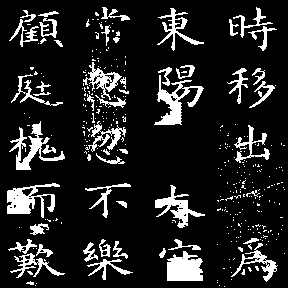 時移出爲
東陽太守
常忽忽不樂
顧庭槐而歎